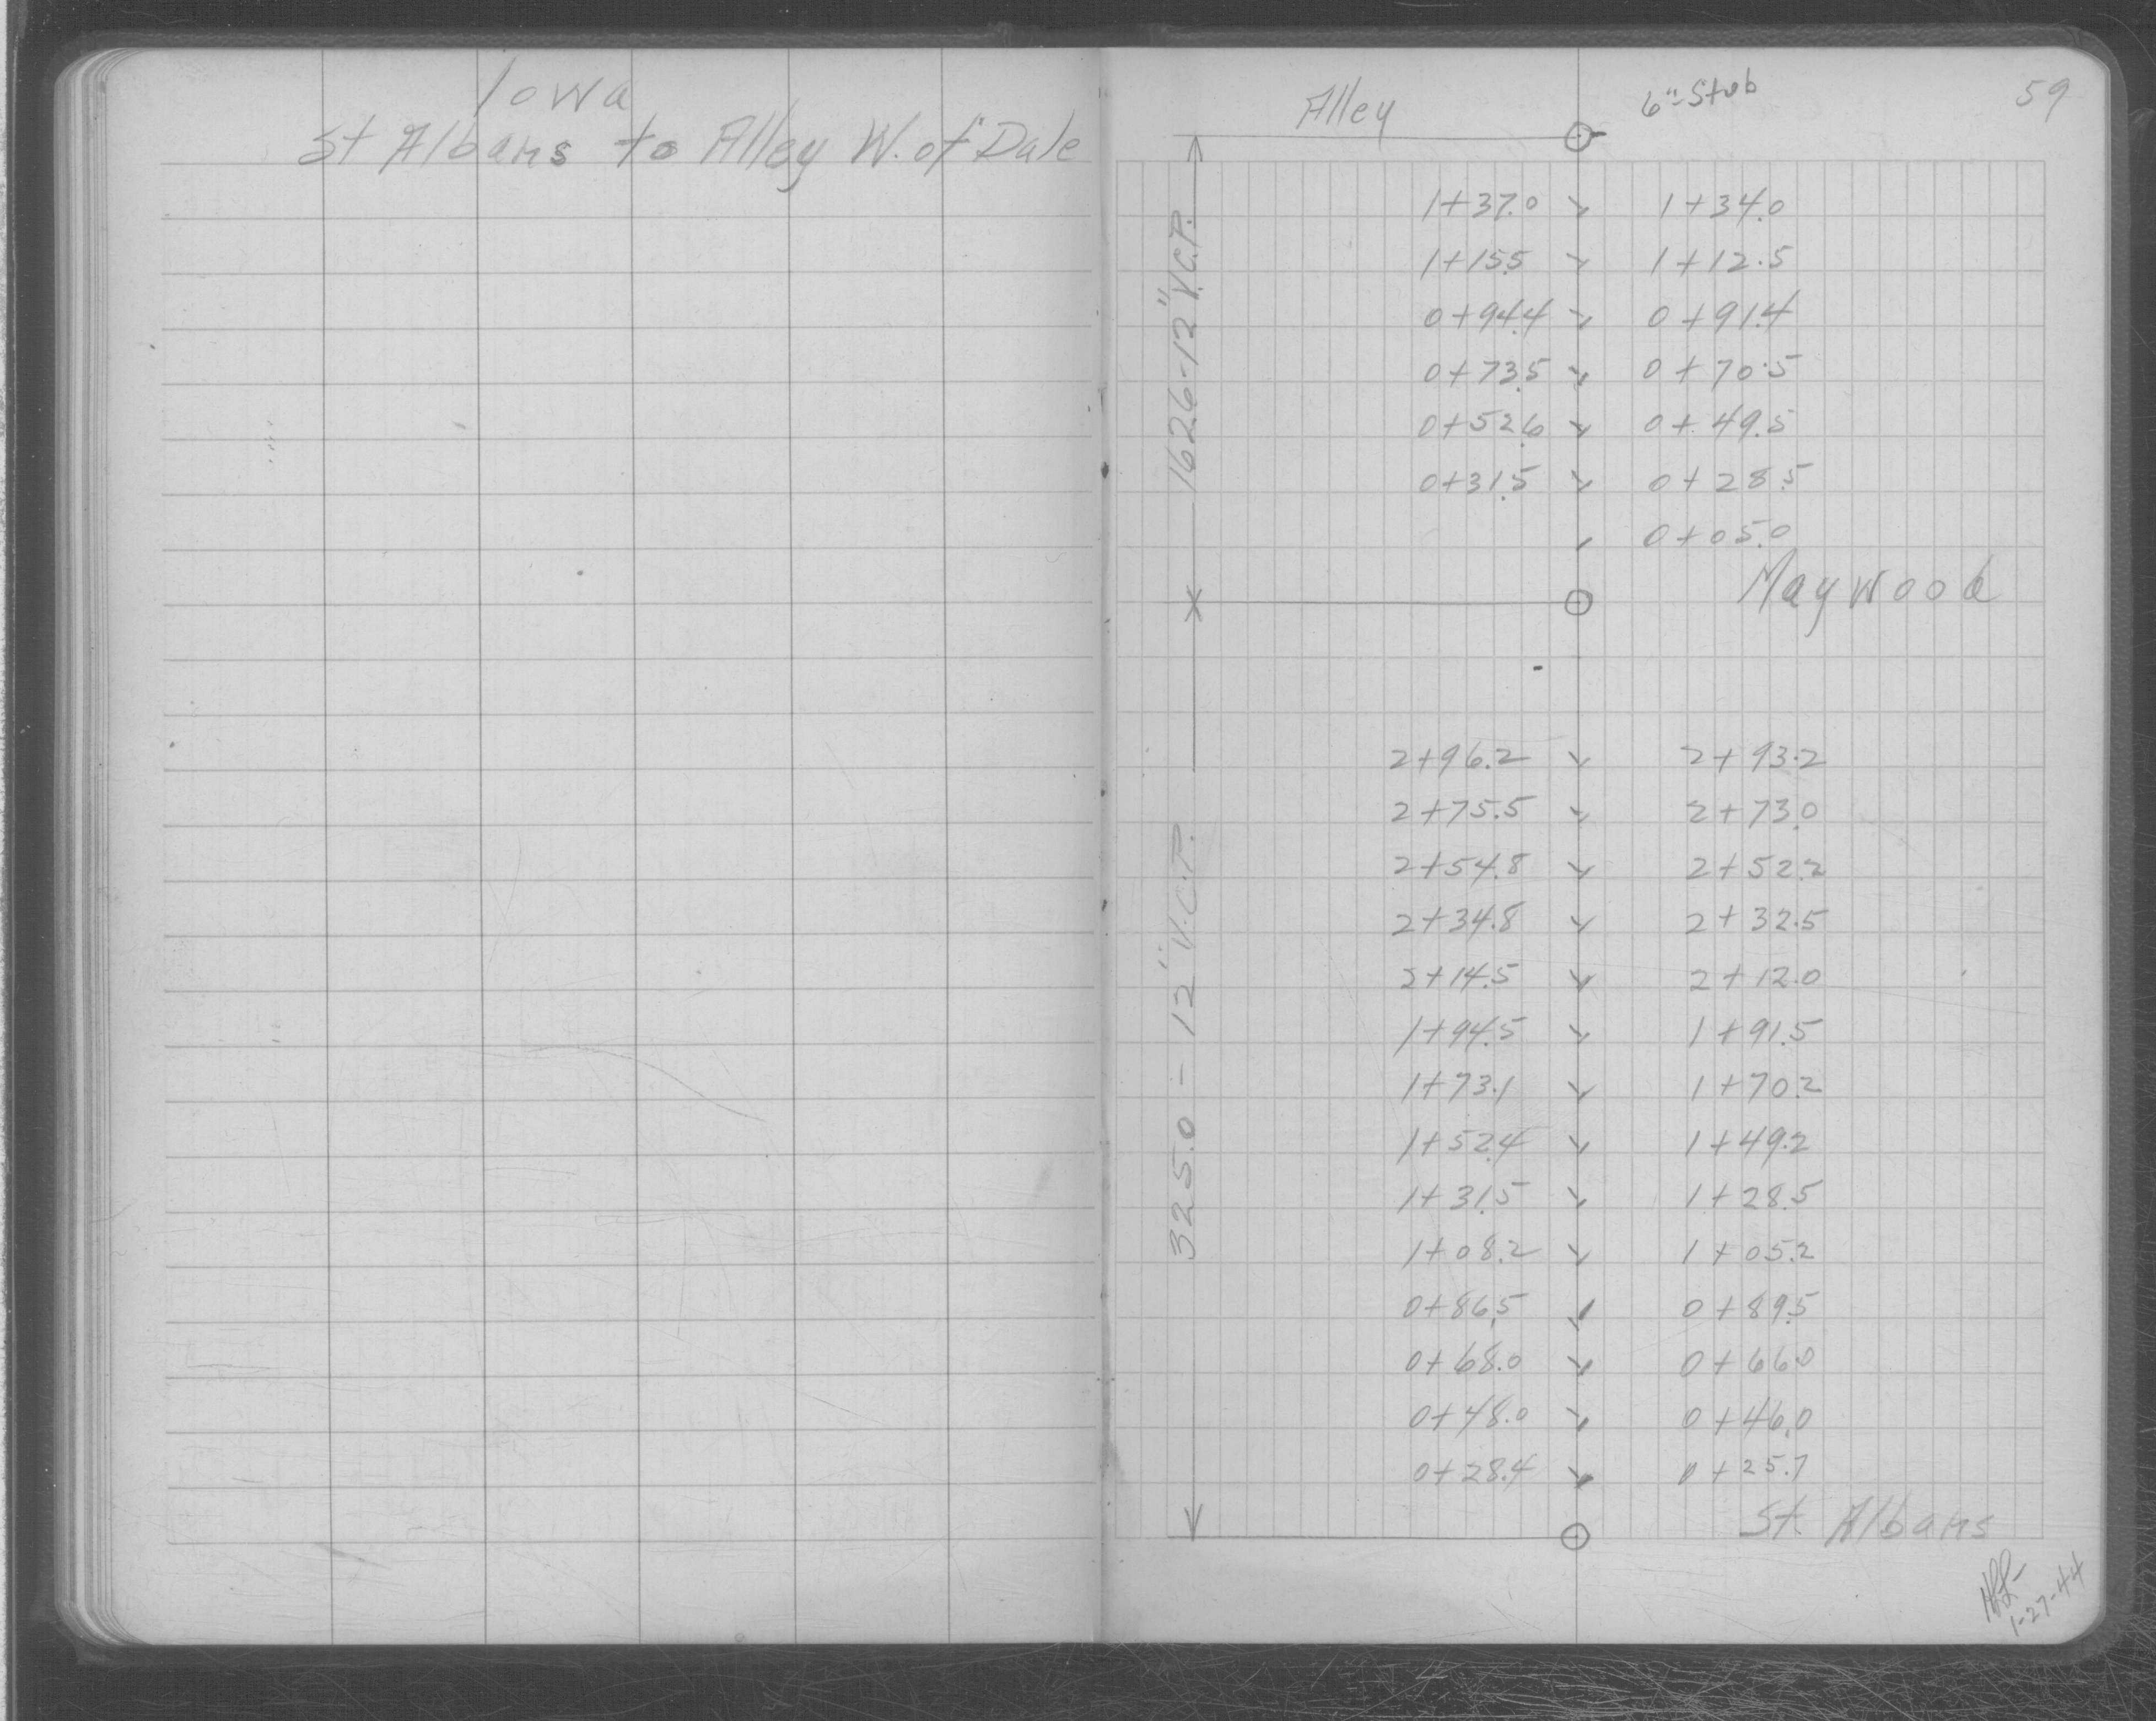 Iowa
St Albans to Alley W. of Dale
59
Alley 6" Stub
1+37.0 1+34.0
1+15.5 1+12.5
0+94.4 0+91.4
0+73.5 0+70.5
0+52.6 0+49.5
0+31.5 0+28.5
0+05.0
162.6-12" V.C.P.
Maywood
2+96.2 2+93.2
2+75.5 2+73.0
2+54.8 2+52.2
2+34.8 2+32.5
2+14.5 2+12.0
1+94.5 1+91.5
1+73.1 1+70.2
1+52.4 1+49.2
1+31.5 1+28.5
1+08.2 1+05.2
0+86.5 0+89.5
0+68.0 0+66.0
0+48.0 0+46.0
0+28.4 0+25.7
325.0 - 12" V.C.P.
St. Albans
1-27-44